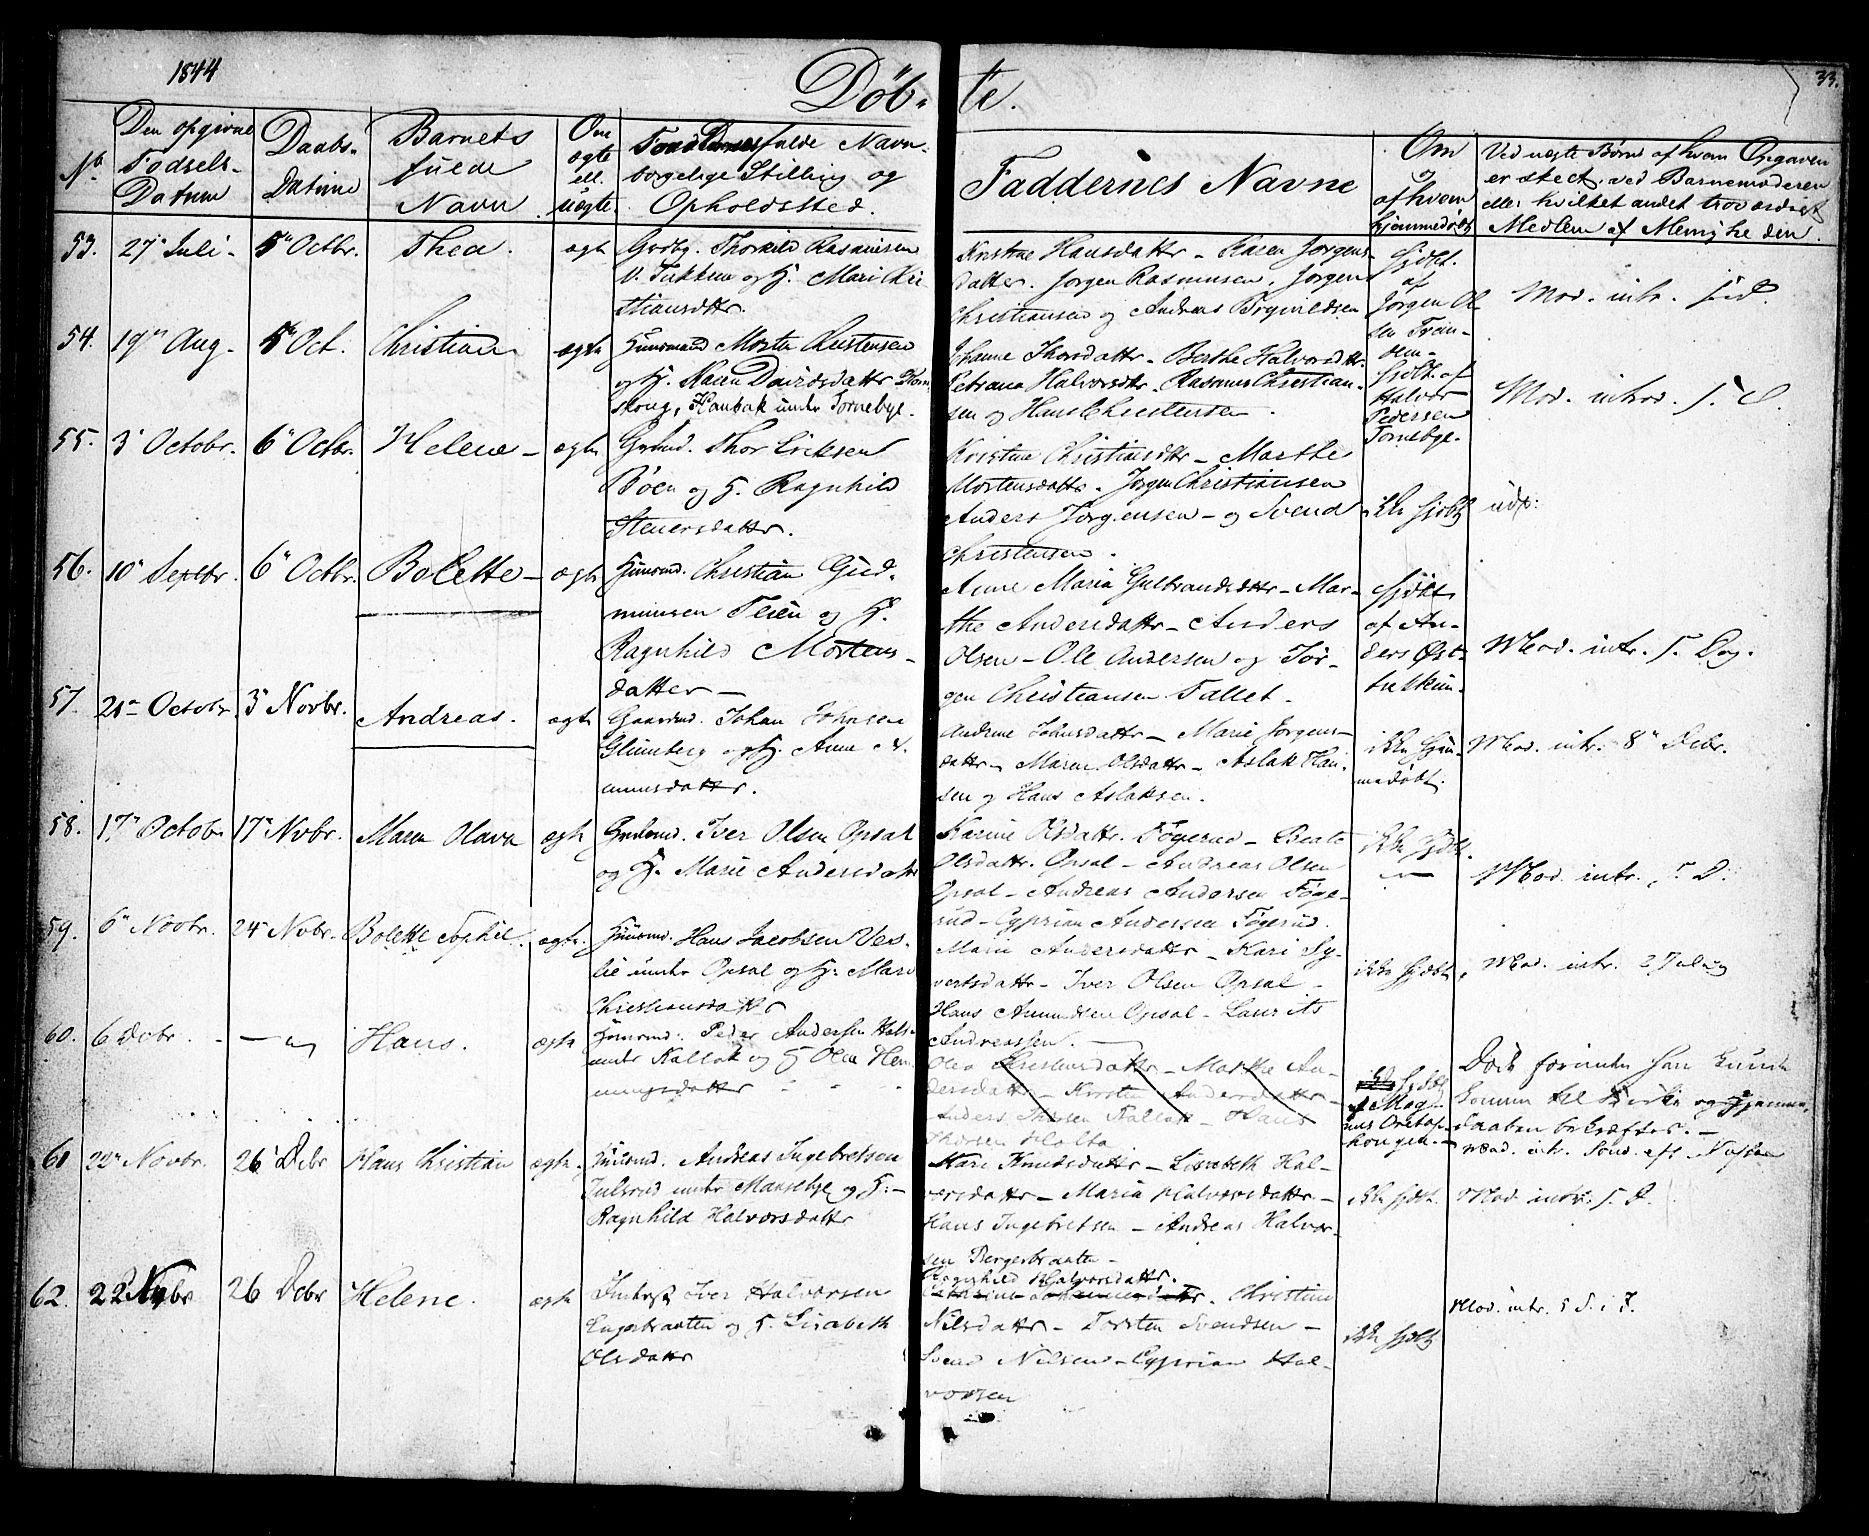 1844
Döb-te.
33.
No
Den opgivne Fødsels-Datum
Daabs-Datum
Barnets fulde Navn
Om ægte ell. uægte.
fulde Navn, borgelige Stilling og Opholdssted.
Faddernes Navne
Om og af hvem hjemmedøbt
Ved uægte Børns af hvem Opgaven er skeet, ved Barnemoderen eller hvilket andet troværdigt Medlem af Menigheden.
53. 27 Juli - 5 Octbr. Thea. ægte
Thorkild Rasmusen
og H. Mari Kri-
stiansdttr.
Kristine Hansdattr - Karen Jorgens-
datter. Jorgen Rasmusen, Jorgen
Christiansen og Andreas
hjdbt. af Jorgen Ol-
sen
Mod. intr. s. d.
54. 19 Aug. 5 Oct. Christian ægte
Huusmand Morten Christensen
og H. Maren Davidsdatter
under Tornebye.
Thorsdattr - Berthe Halvorsdttr.
Halvorsdtr. Rasmus Christian-
sen og Hans Christensen.
hjdbt. af
Halvor
Pedersen
Tornebye.
Mod. introd. s. d.
55. 3 Octobr. 6 Octbr. Helene - ægte
Thor Eriksen
og H. Ragnhild
Steneersdattr.
Kristine Christiansdttr - Marthe
Mortensdattr. Jorgen Christiansen
Anders Jorgensen - og Svend
Christensen.
ikke hjdbt
56. 10 Septbr. 6 Octbr. Bolette - ægte
Huusmd. Christian Gud-
munsen Teien og H.
Ragnhild Mortens-
datter -
Anne Maria Gulbrandsdttr - Mar-
the Andersdattr - Anders
Olsen - Ole Andersen og Jør-
gen Christiansen Fallet.
hjdbt
af An-
ders Øst-
Mod. intr. s. Dag.
57. 20 Octobr. 3 Novbr. Andreas. ægte
Gaardmd. Johan Johnsen
Glimberg og H. Anne A-
mundsdattr.
Andrine Johnsdattr - Marie Jorgens-
dattr - Maren Olsdattr - Aslak Han-
sen og Hans Aslaksen.
ikke hjem-
medøbt.
Mod. intr. 8 Debr.
58. 17 Octobr 17 Novbr. Maren Olava ægte
Iver Olsen Opsal
og H. Marie Andersdattr
Karine Olsdattr. Fögerud - Beate
Olsdattr. Opsal - Andreas Olsen
Opsal - Andreas Andersen Föge-
rud - Cyprian Andersen Fögerud.
ikke hjdbt.
Mod. intr. s. D.
59. 6 Novbr. 24 Novbr. Bolette Sophie. ægte.
Huusmd. Hans Jacobsen Ves-
lie under Opsal og H. Mari
Christiansdattr
Marie Andersdattr - Kari Sy-
vertsdattr - Iver Olsen Opsal -
Hans Amundsen Opsal - Laurits
Andreassen.
ikke hjdbt,
Mod. intr. 2 Juledag
60. 6 Decbr. Hans. ægte
Huusmd. Peder Andersen
under Kallak og H Olea Hen-
ningsdatter
Olea Christensdattr - Marthe An-
dersdattr - Kirsten Andersdattr -
Anders Thorsen Kallak - Hans
Thorsen Holta
hjdbt
af Mag-
nus
hougen. -
Død forinden han kunde
komme til Kirke og Hjemme-
daaben bekræftes. -
Mod. intr. Sønd. eft. Nytaar
61 22 Novbr. 26 Debr Hans Christian ægte.
Huusmd. Andreas Ingebretsen
Julsrud under Mansebye og H. -
Ragnhild Halvorsdattr
Kari Knudsdattr - Lisabeth Hal-
vorsdattr - Maria Halvorsdattr -
Hans Ingebretsen - Andreas Halvor-
sen Bergerbraaten -
ikke hjdbt.
Mod. intr. s. D.
62. 22 Novbr 26 Debr Helene. ægte
Inderst Iver Halvorsen
Engerbraaten og H. Lisabeth
Olsdattr
Ragnhild Halvorsdattr.
Christine
Nilsdattr - Torsten Svendsen -
Svend Nilsen - Cyprian Hal-
vorsen
ikke hjdbt
Mod. intr. 5 S. i F.